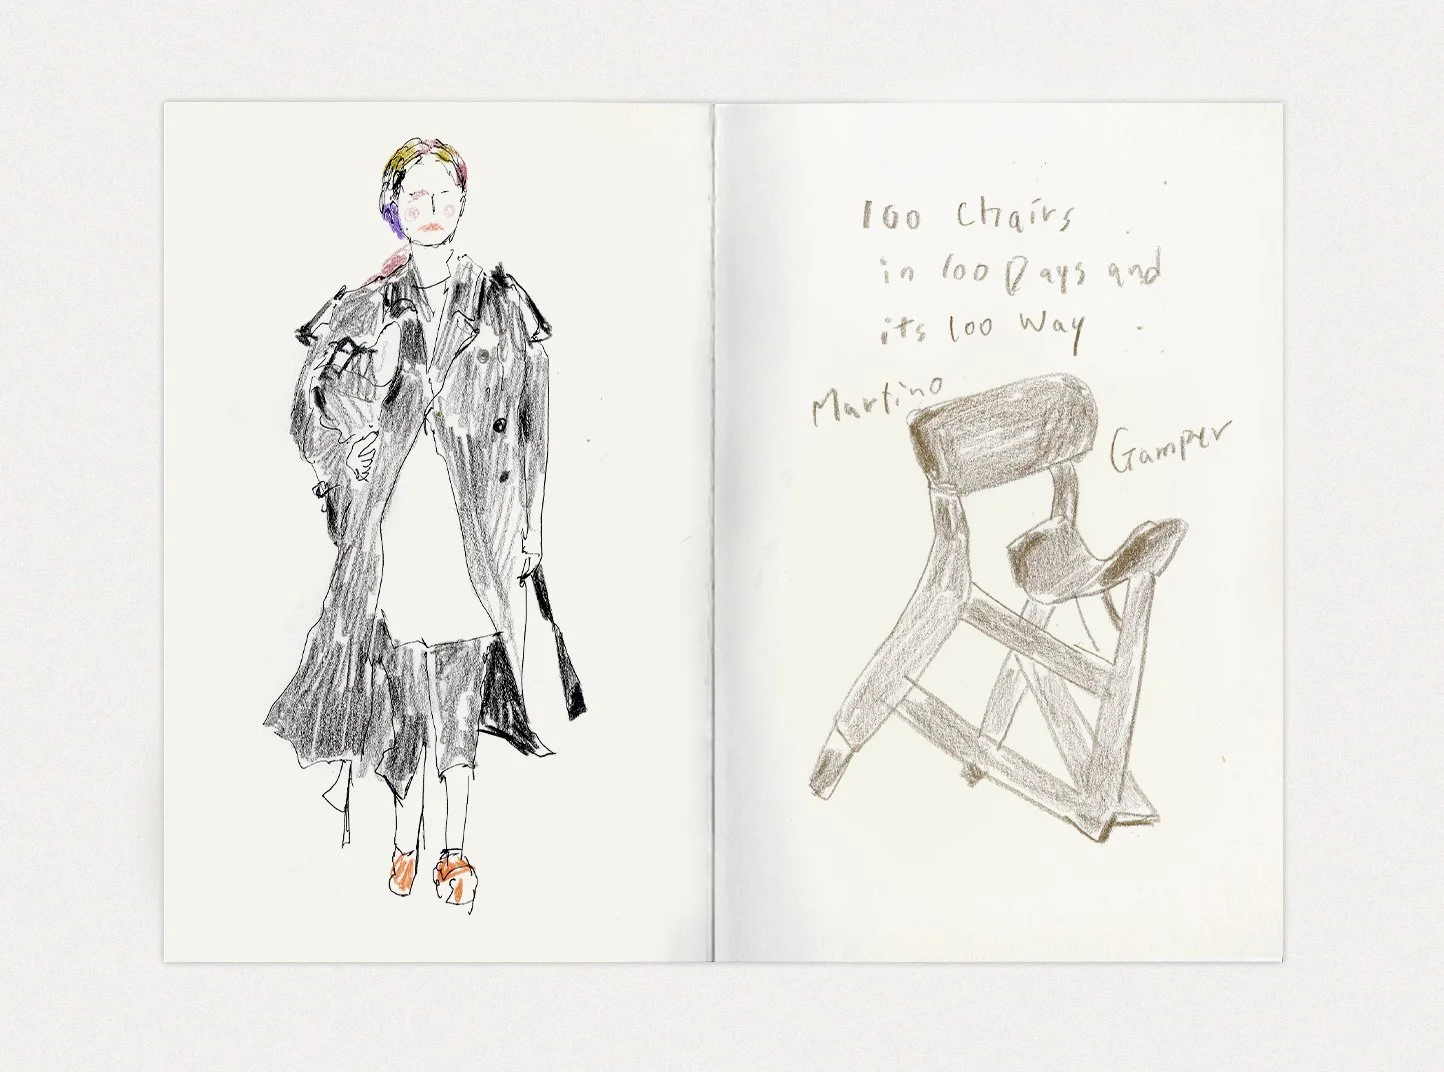 100 Chairs
in 100 Days and
its 100 Way
Martino
Gamper